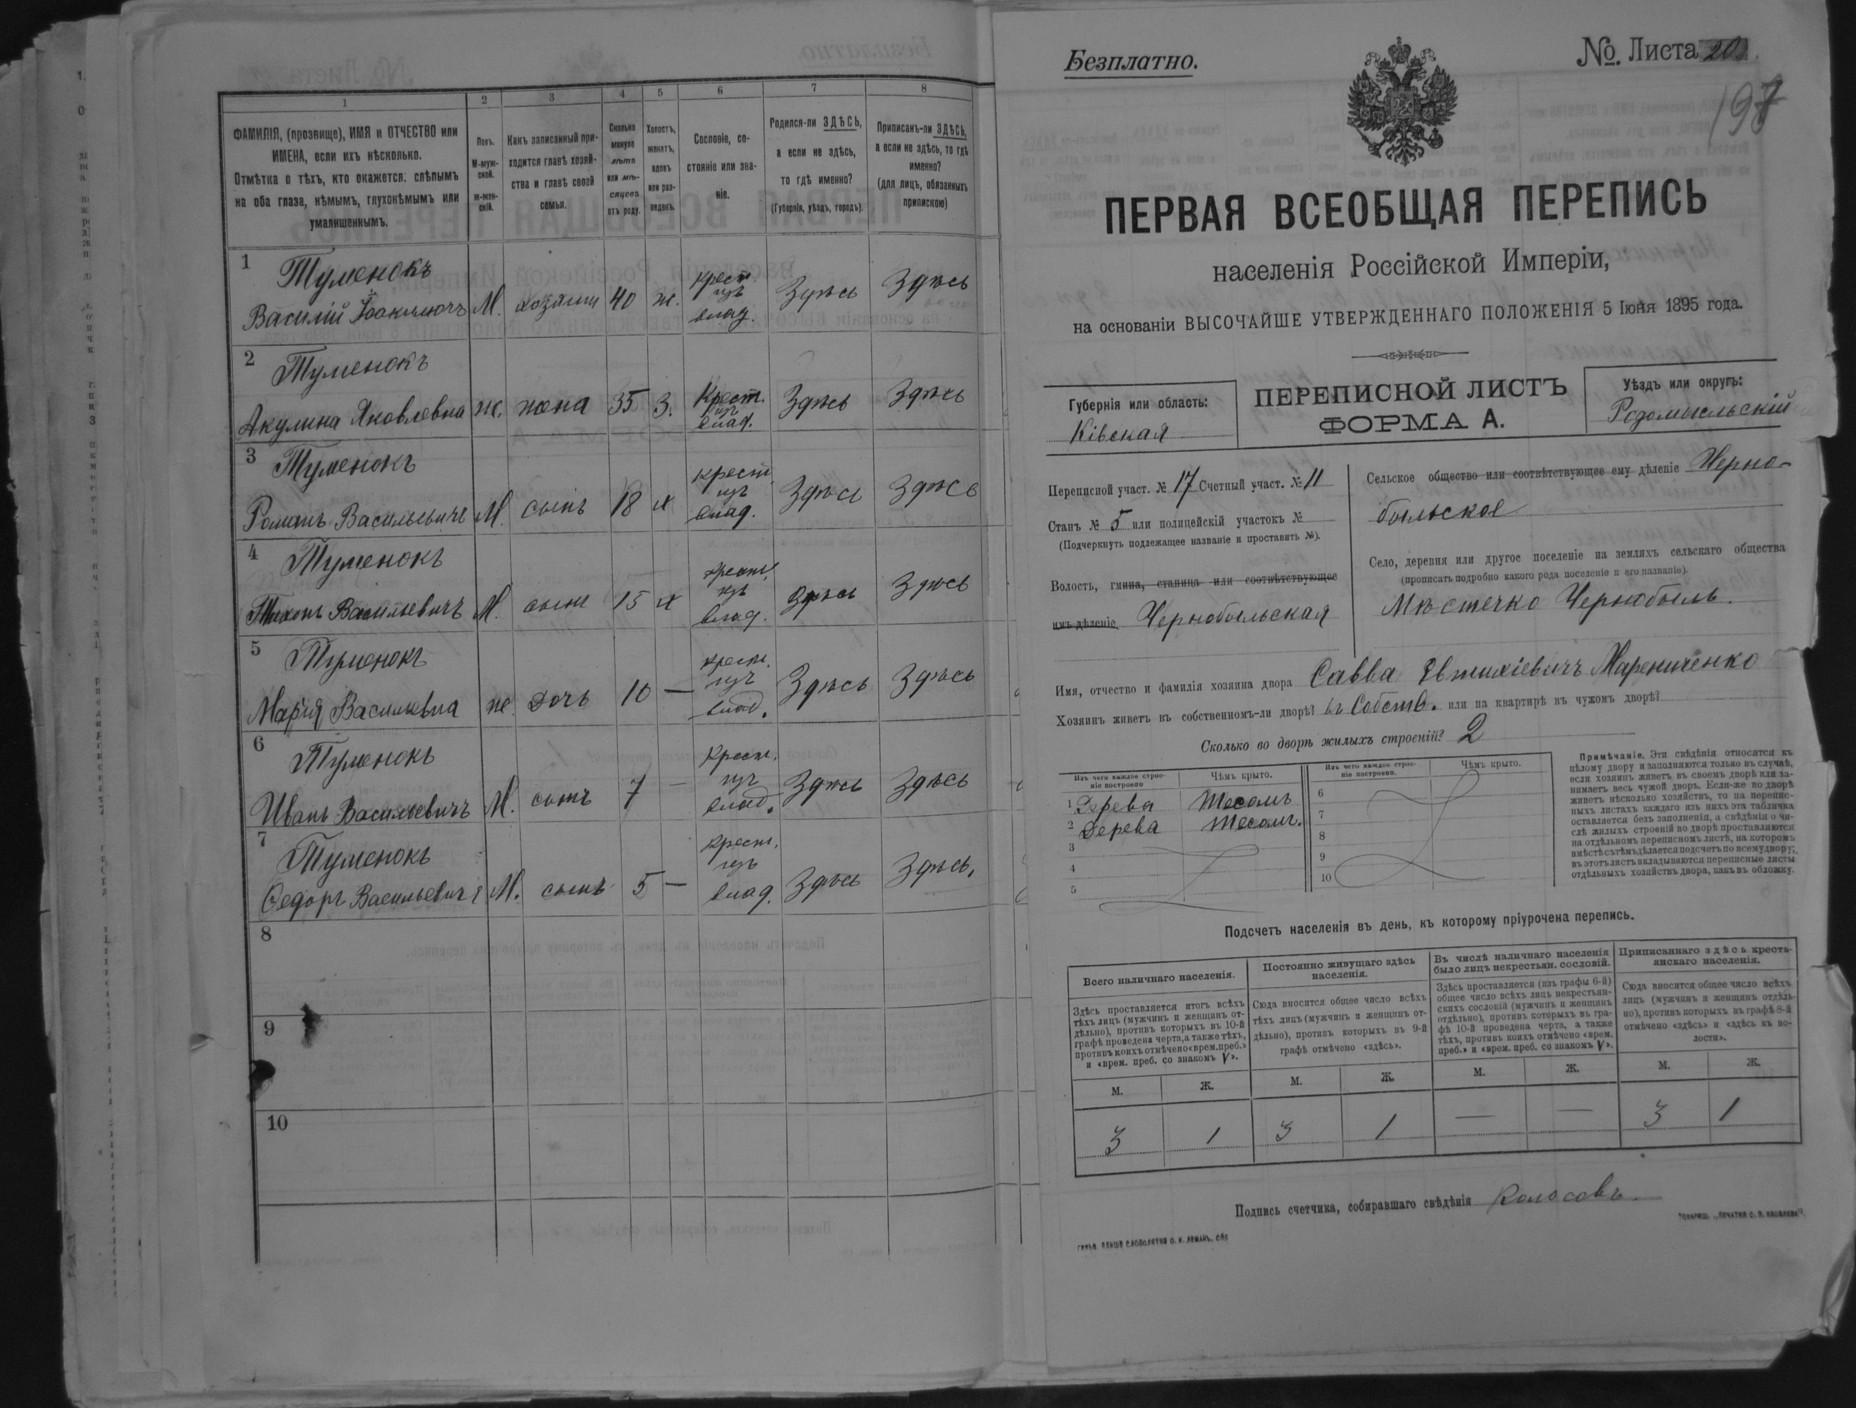 1 2 3 4 5 6 7 8
ФАМИЛІЯ, (прозвище), ИМЯ и ОТЧЕСТВО или
ИМЕНА, если ихъ нѣсколько.
Отмѣтка о тѣхъ, кто окажется: слѣпымъ
на оба глаза, нѣмымъ, глухонѣмымъ или
умалишеннымъ.
Полъ.
М-муж-
ской.
ж-жен-
скій.
Какъ записанный при-
ходится главѣ хозяй-
ства и главѣ своей
семьи.
Сколько
минуло
лѣтъ
или мѣ-
сяцевъ
отъ роду.
Холостъ,
женатъ,
вдовъ
или раз-
веденъ.
Сословіе, со-
стояніе или зва-
ніе.
Родился-ли ЗДѢСЬ,
а если не здѣсь,
то гдѣ именно?
(Губернія, уѣздъ, городъ).
Приписанъ-ли ЗДѢСЬ,
а если не здѣсь, то гдѣ
именно?
(для лицъ, обязанныхъ
припискою)
1 Туменокъ
Василій М. хозяин 40 ж. крест. изъ влад. Здѣсь Здѣсь
2 Туменокъ
Акулина Яковлевна ж. жена 35 з. Крест. изъ влад. Здѣсь Здѣсь
3 Туменокъ
Романъ Васильевичъ М. сынъ 18 х крест. изъ влад. Здѣсь Здѣсь
4 Туменокъ
Тихонъ Васильевичъ М. сынъ 15 х крест. изъ влад. Здѣсь Здѣсь
5 Туменокъ
Марія Васильевна ж. дочь 10 — крест. изъ влад. Здѣсь Здѣсь
6 Туменокъ
Иванъ Васильевичъ М. сынъ 7 — Крест. изъ влад. Здѣсь Здѣсь
7 Туменокъ
Ѳедоръ Васильевичъ М. сынъ 5 — Крест. изъ влад. Здѣсь Здѣсь.
8
9
10
Безплатно.
№. Листа 20
197
ПЕРВАЯ ВСЕОБЩАЯ ПЕРЕПИСЬ
населенія Россійской Имперіи,
на основаніи ВЫСОЧАЙШЕ УТВЕРЖДЕННАГО ПОЛОЖЕНІЯ 5 Іюня 1895 года.
Губернія или область:
Кіевская
ПЕРЕПИСНОЙ ЛИСТЪ
ФОРМА А.
Уѣздъ или округъ:
Родомысльскій
Переписной участ. № 17 Счетный участ. № 11
Станъ № 5 или полицейскій участокъ №
(Подчеркнуть подлежащее названіе и проставить №).
Волость, гмина, станица или соотвѣтствующее
имъ дѣленіе Чернобыльская
Сельское общество или соотвѣтствующее ему дѣленіе Черно-
быльское
Село, деревня или другое поселеніе на земляхъ сельскаго общества
(прописать подробно какого рода поселеніе и его названіе).
Мѣстечко Чернобыль.
Имя, отчество и фамилія хозяина двора Савва Евтихіевичъ Марениченко
Хозяинъ живетъ въ собственномъ-ли дворѣ? въ Собств. или на квартирѣ въ чужомъ дворѣ?
Сколько во дворѣ жилыхъ строеній? 2
Изъ чего каждое строе-
ніе построено
Чѣмъ крыто.
Изъ чего каждое строе-
ніе построено.
Чѣмъ крыто.
1 Дерева Тесомъ 6
2 Дерева Тесомъ. 7
3 8
4 9
5 10
Примѣчаніе. Эти свѣдѣнія относятся къ
цѣлому двору и заполняются только въ случаѣ,
если хозяинъ живетъ въ своемъ дворѣ или за-
нимаетъ весь чужой дворъ. Если-же во дворѣ
живетъ нѣсколько хозяйствъ, то на перепис-
ныхъ листахъ каждаго изъ нихъ эта табличка
оставляется безъ заполненія, а свѣдѣнія о чи-
слѣ жилыхъ строеній во дворѣ проставляются
на отдѣльномъ переписномъ листѣ, на которомъ
вмѣстѣ съ тѣмъ дѣлается подсчетъ по всему двору;
въ этотъ листъ вкладываются переписные листы
отдѣльныхъ хозяйствъ двора, какъ въ обложку.
Подсчетъ населенія въ день, къ которому пріурочена перепись.
Всего наличнаго населенія.
Постоянно живущаго здѣсь
населенія.
Въ числѣ наличнаго населенія
было лицъ некрестьян. сословій.
Приписаннаго здѣсь кресть-
янскаго населенія.
Здѣсь проставляется итогъ всѣхъ
тѣхъ лицъ (мужчинъ и женщинъ от-
дѣльно), противъ которыхъ въ 10-й
графѣ проведена черта, а также тѣхъ,
противъ коихъ отмѣчено «врем. преб.»
и «врем. преб. со знакомъ V».
Сюда вносится общее число всѣхъ
тѣхъ лицъ (мужчинъ и женщинъ от-
дѣльно), противъ которыхъ въ 9-й
графѣ отмѣчено «здѣсь».
Здѣсь проставляется (изъ графы 6-й)
общее число всѣхъ лицъ некрестьян-
скихъ сословій (мужчинъ и женщинъ
отдѣльно), противъ которыхъ въ гра-
фѣ 10-й проведена черта, а также
тѣхъ, противъ коихъ отмѣчено «врем.
преб.» и «врем. преб. со знакомъ V».
Сюда вносится общее число всѣхъ
лицъ (мужчинъ и женщинъ отдѣль-
но), противъ которыхъ въ графѣ 8-й
отмѣчено «здѣсь» и «здѣсь въ во-
лости».
М. Ж. М. Ж. М. Ж. М. Ж.
3 1 3 1 — — 3 1
Подпись счетчика, собиравшаго свѣдѣнія Колосовъ